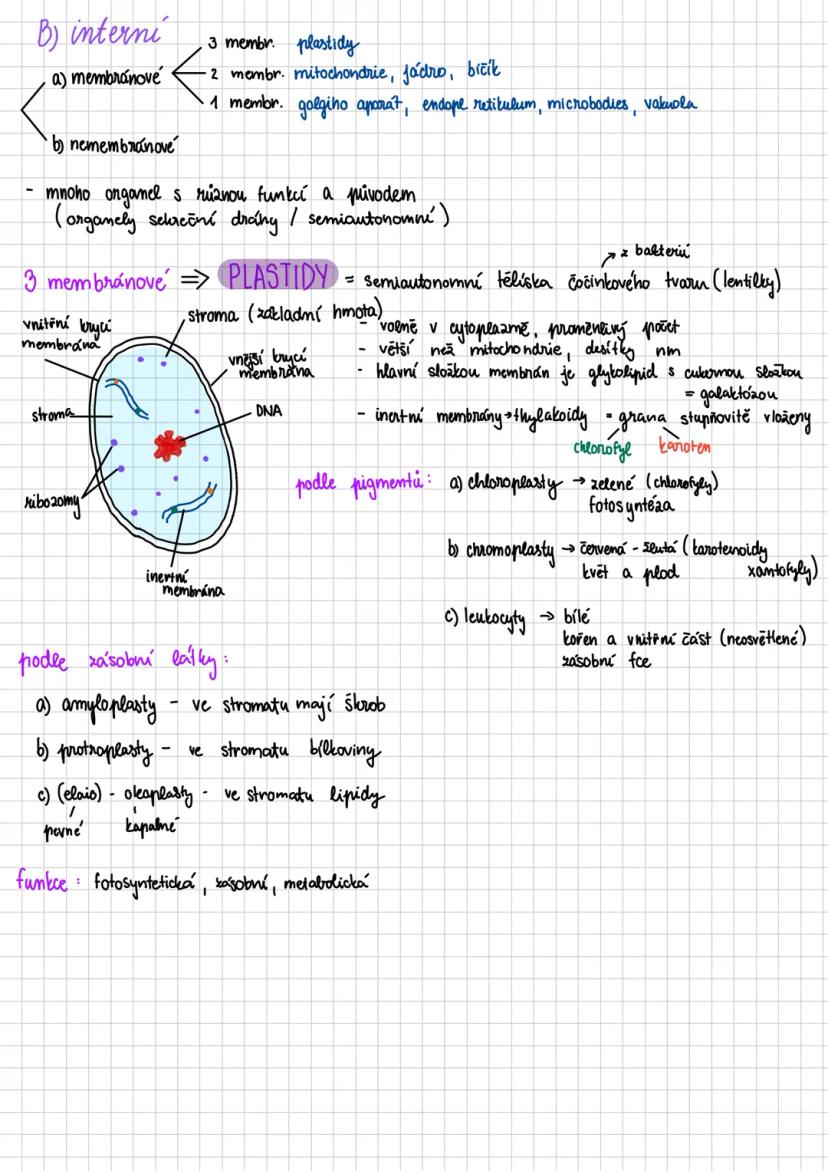 B) interní
3 membr. plastidy
a) membránové
2 membr. mitochondrie, jádro, bičík
1 membr. golgiho aparát, endopl. retikulum, microbodies, vakuola
b) nemembránové
- mnoho organel s různou funkcí a původem
(organely sekreční dráhy / semiautonomní)
z bakterií
3 membránové => PLASTIDY = semiautonomní tělíska čočinkového tvaru (lentilky)
stroma (základní hmota)
vnitřní krycí membrána
vnější krycí membrána
stroma
DNA
ribozomy
inertní membrána
- volně v cytoplazmě, proměnlivý počet
- větší než mitochondrie, desítky nm
- hlavní složkou membrán je glykolipid s cukernou složkou
= galaktózou
- inertní membrány → thylakoidy = grana stupňovitě vloženy
chlorofyl karoten
podle pigmentů: a) chloroplasty → zelené (chlorofyly)
fotosyntéza
b) chromoplasty → červená - žlutá (karotenoidy
květ a plod xantofyly)
c) leukocyty → bílé
kořen a vnitřní část (neosvětlené)
zásobní fce
podle zásobní látky:
a) amyloplasty - ve stromatu mají škrob
b) protroplasty - ve stromatu bílkoviny
c) (elaio) - oleoplasty - ve stromatu lipidy
pevné kapalné
funkce: fotosyntetická, zásobní, metabolická